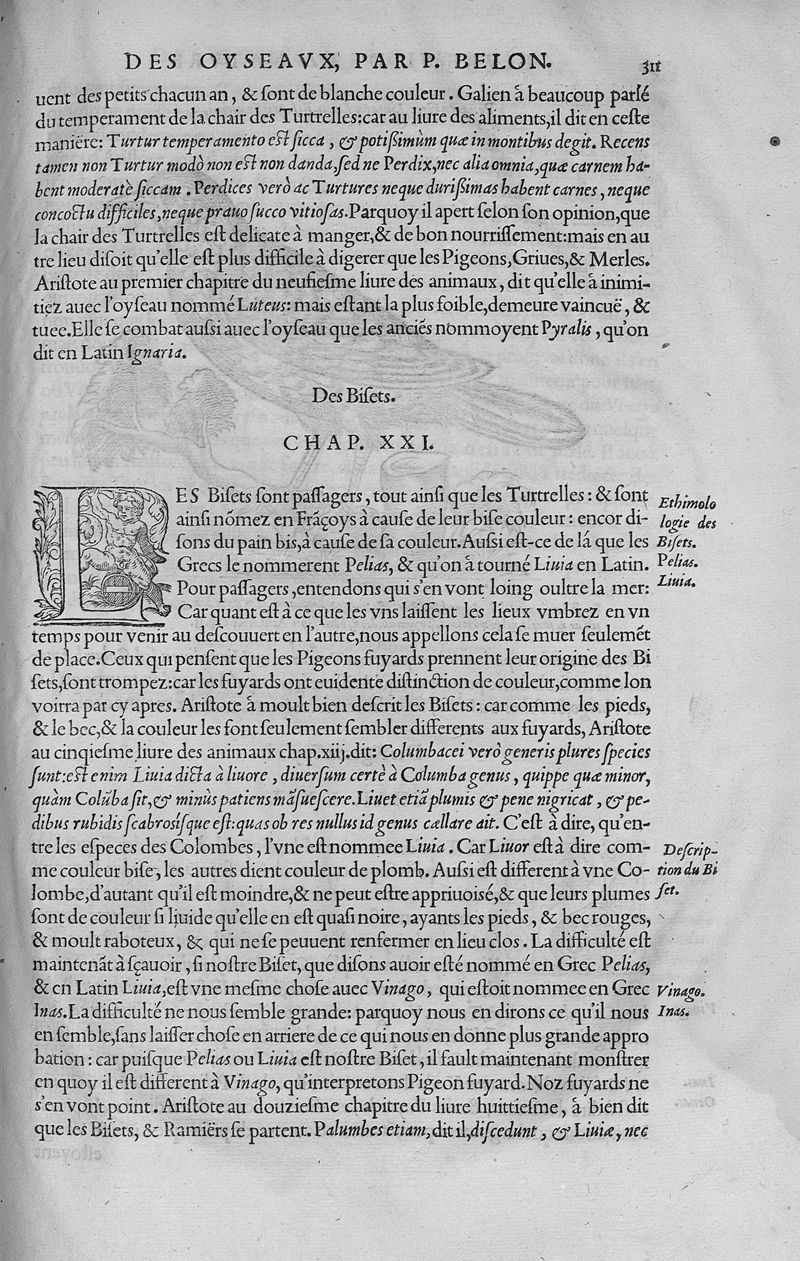 DES OYSEAVX, PAR P. BELON. 311
uent des petits chacun an, & ſont de blanche couleur. Galien à beaucoup parlé
du temperament de la chair des Turtrelles: car au liure des aliments, il dit en ceſte
maniére: Turtur temperamento eſt ſicca, & potißimùm quæ in montibus degit. Recens
tamen non Turtur modò non eſt non danda, ſed ne Perdix, nec alia omnia, quæ carnem ha-
bent moderatè ſiccam. Perdices verò ac Turtures neque durißimas habent carnes, neque
concoctu difficiles, neque prauo ſucco vitioſas. Parquoy il apert ſelon ſon opinion, que
la chair des Turtrelles eſt delicate à manger, & de bon nourriſſement: mais en au
tre lieu diſoit qu'elle eſt plus difficile à digerer que les Pigeons, Griues, & Merles.
Ariſtote au premier chapitre du neufieſme liure des animaux, dit qu'elle à inimi-
tiez auec l'oyſeau nommé Luteus: mais eſtant la plus foible, demeure vaincuë, &
tuee. Elle ſe combat auſsi auec l'oyſeau que les anciẽs nommoyent Pyralis, qu'on
dit en Latin Ignaria.
Des Biſets.
CHAP. XXI.
LES Biſets ſont paſſagers, tout ainſi que les Turtrelles: & ſont
ainſi nõmez en Frãçoys à cauſe de leur biſe couleur: encor di-
ſons du pain bis, à cauſe de ſa couleur. Auſsi eſt-ce de là que les
Grecs le nommerent Pelias, & qu'on à tourné Liuia en Latin.
Pour paſſagers, entendons qui s'en vont loing oultre la mer:
Car quant eſt à ce que les vns laiſſent les lieux vmbrez en vn
temps pour venir au deſcouuert en l'autre, nous appellons cela ſe muer ſeulemẽt
de place. Ceux qui penſent que les Pigeons fuyards prennent leur origine des Bi
ſets, ſont trompez: car les fuyards ont euidente diſtinction de couleur, comme lon
voirra par cy apres. Ariſtote à moult bien deſcrit les Biſets: car comme les pieds,
& le bec, & la couleur les font ſeulement ſembler differents aux fuyards, Ariſtote
au cinqieſme liure des animaux chap. xiij. dit: Columbacei verò generis plures ſpecies
ſunt: eſt enim Liuia dicta à liuore, diuerſum certè à Columba genus, quippe quæ minor,
quàm Colũba ſit, & minùs patiens mãſueſcere. Liuet etiã plumis & pene nigricat, & pe-
dibus rubidis ſcabroſiſque eſt: quas ob res nullus id genus cellare ait. C'eſt à dire, qu'en-
tre les eſpeces des Colombes, l'vne eſt nommee Liuia. Car Liuor eſt à dire com-
me couleur biſe, les autres dient couleur de plomb. Auſsi eſt different à vne Co-
lombe, d'autant qu'il eſt moindre, & ne peut eſtre appriuoiſé, & que leurs plumes
ſont de couleur ſi liuide qu'elle en eſt quaſi noire, ayants les pieds, & bec rouges,
& moult raboteux, & qui ne ſe peuuent renfermer en lieu clos. La difficulté eſt
maintenãt à ſçauoir, ſi noſtre Biſet, que diſons auoir eſté nommé en Grec Pelias,
& en Latin Liuia, eſt vne meſme choſe auec Vinago, qui eſtoit nommee en Grec
Inas. La difficulté ne nous ſemble grande: parquoy nous en dirons ce qu'il nous
en ſemble, ſans laiſſer choſe en arriere de ce qui nous en donne plus grande appro
bation: car puiſque Pelias ou Liuia eſt noſtre Biſet, il fault maintenant monſtrer
en quoy il eſt different à Vinago, qu'interpretons Pigeon fuyard. Noz fuyards ne
s'en vont point. Ariſtote au douzieſme chapitre du liure huittieſme, à bien dit
que les Biſets, & Ramiërs ſe partent. Palumbes etiam, dit il, diſcedunt, & Liuiæ, nec
Ethimolo
logie des
Biſets.
Pelias.
Liuia.
Deſcrip-
tion du Bi
ſet.
Vinago.
Inas.